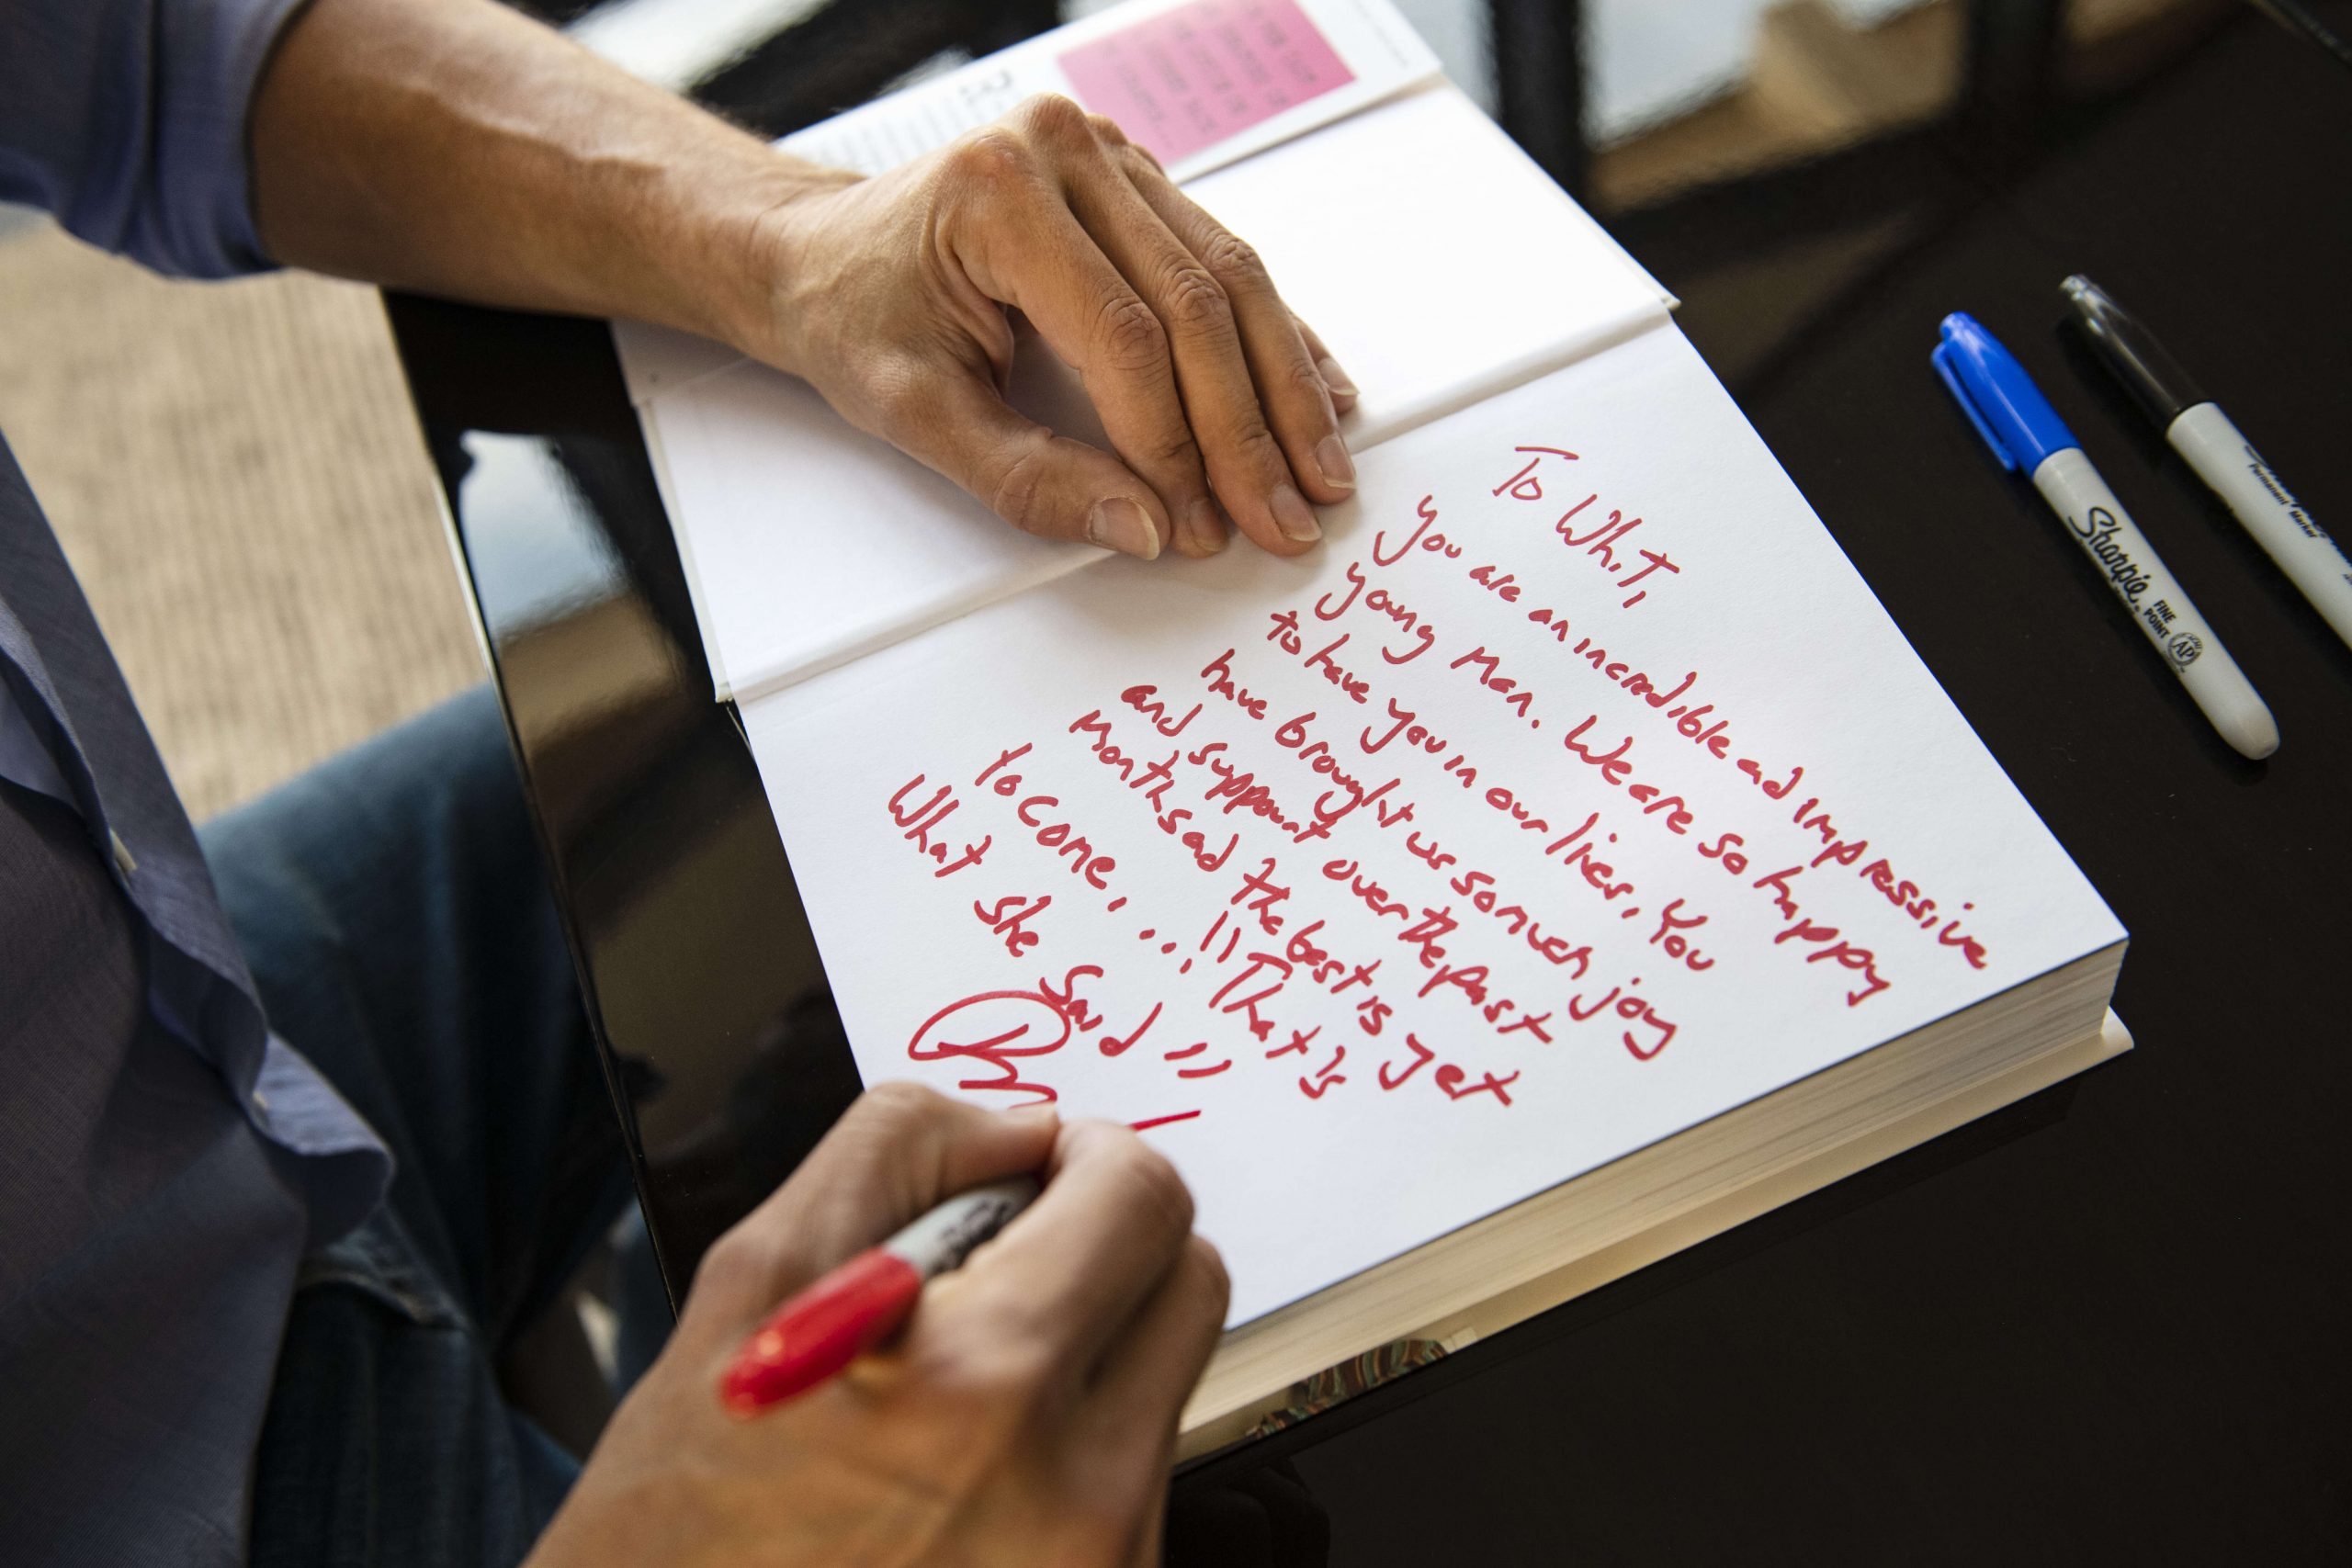 To Whit,
You are an incredible and impressive
young man. We are so happy
to have you in our lives. You
have brought us so much joy
and support over the past
months ad the best is yet
to come....!! That's
What she said !!
Sharpie
FINE
POINT
AP
Permanent Marker